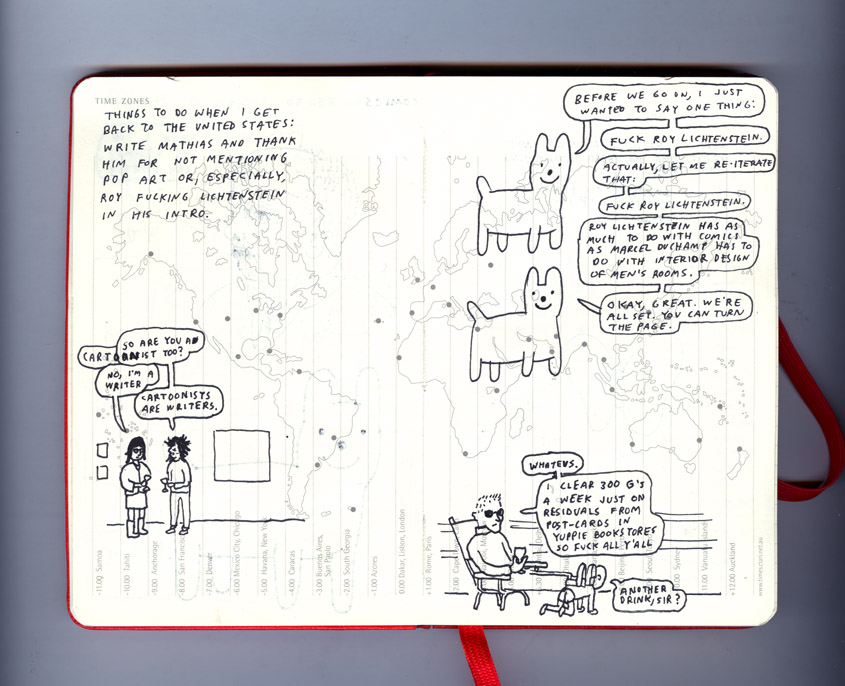 TIME ZONES
THINGS TO DO WHEN I GET
BACK TO THE UNITED STATES:
WRITE MATHIAS AND THANK
HIM FOR NOT MENTIONING
POP ART OR, ESPECIALLY,
ROY FUCKING LICHTENSTEIN
IN HIS INTRO.
SO ARE YOU A
CARTOONIST TOO?
NO, I'M A
WRITER
CARTOONISTS
ARE WRITERS.
BEFORE WE GO ON, I JUST
WANTED TO SAY ONE THING:
FUCK ROY LICHTENSTEIN.
ACTUALLY, LET ME RE-ITERATE
THAT:
FUCK ROY LICHTENSTEIN.
ROY LICHTENSTEIN HAS AS
MUCH TO DO WITH COMICS
AS MARCEL DUCHAMP HAS TO
DO WITH INTERIOR DESIGN
OF MEN'S ROOMS.
OKAY, GREAT. WE'RE
ALL SET. YOU CAN TURN
THE PAGE.
WHATEVS.
I CLEAR 300 G'S
A WEEK JUST ON
RESIDUALS FROM
POST-CARDS IN
YUPPIE BOOKSTORES
SO FUCK ALL Y'ALL
ANOTHER
DRINK, SIR?
-11.00 Samoa
-10.00 Tahiti
-9.00 Anchorage
-8.00 San Francisco
-7.00 Denver
-6.00 Mexico City, Chicago
-5.00 Havana, New York
-4.00 Caracas
-3.00 Buenos Aires,
San Paolo
-2.00 South Georgia
-1.00 Azores
0.00 Dakar, Lisbon, London
+1.00 Rome, Paris
+2.00
+11.00 Vanuatu Islands
+12.00 Auckland